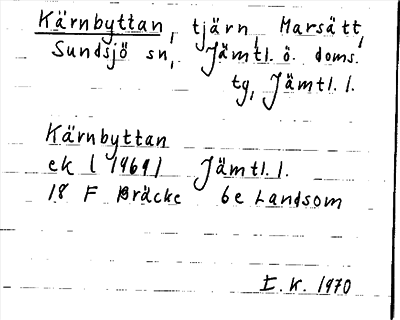 Kärnbyttan, tjärn, Marsätt,
Sundsjö sn, Jämtl. ö. doms.
tg, Jämtl. l.
Kärnbyttan
ek (1969) Jämtl. l.
18 F Bräcke 6e Landsom
I. K. 1970